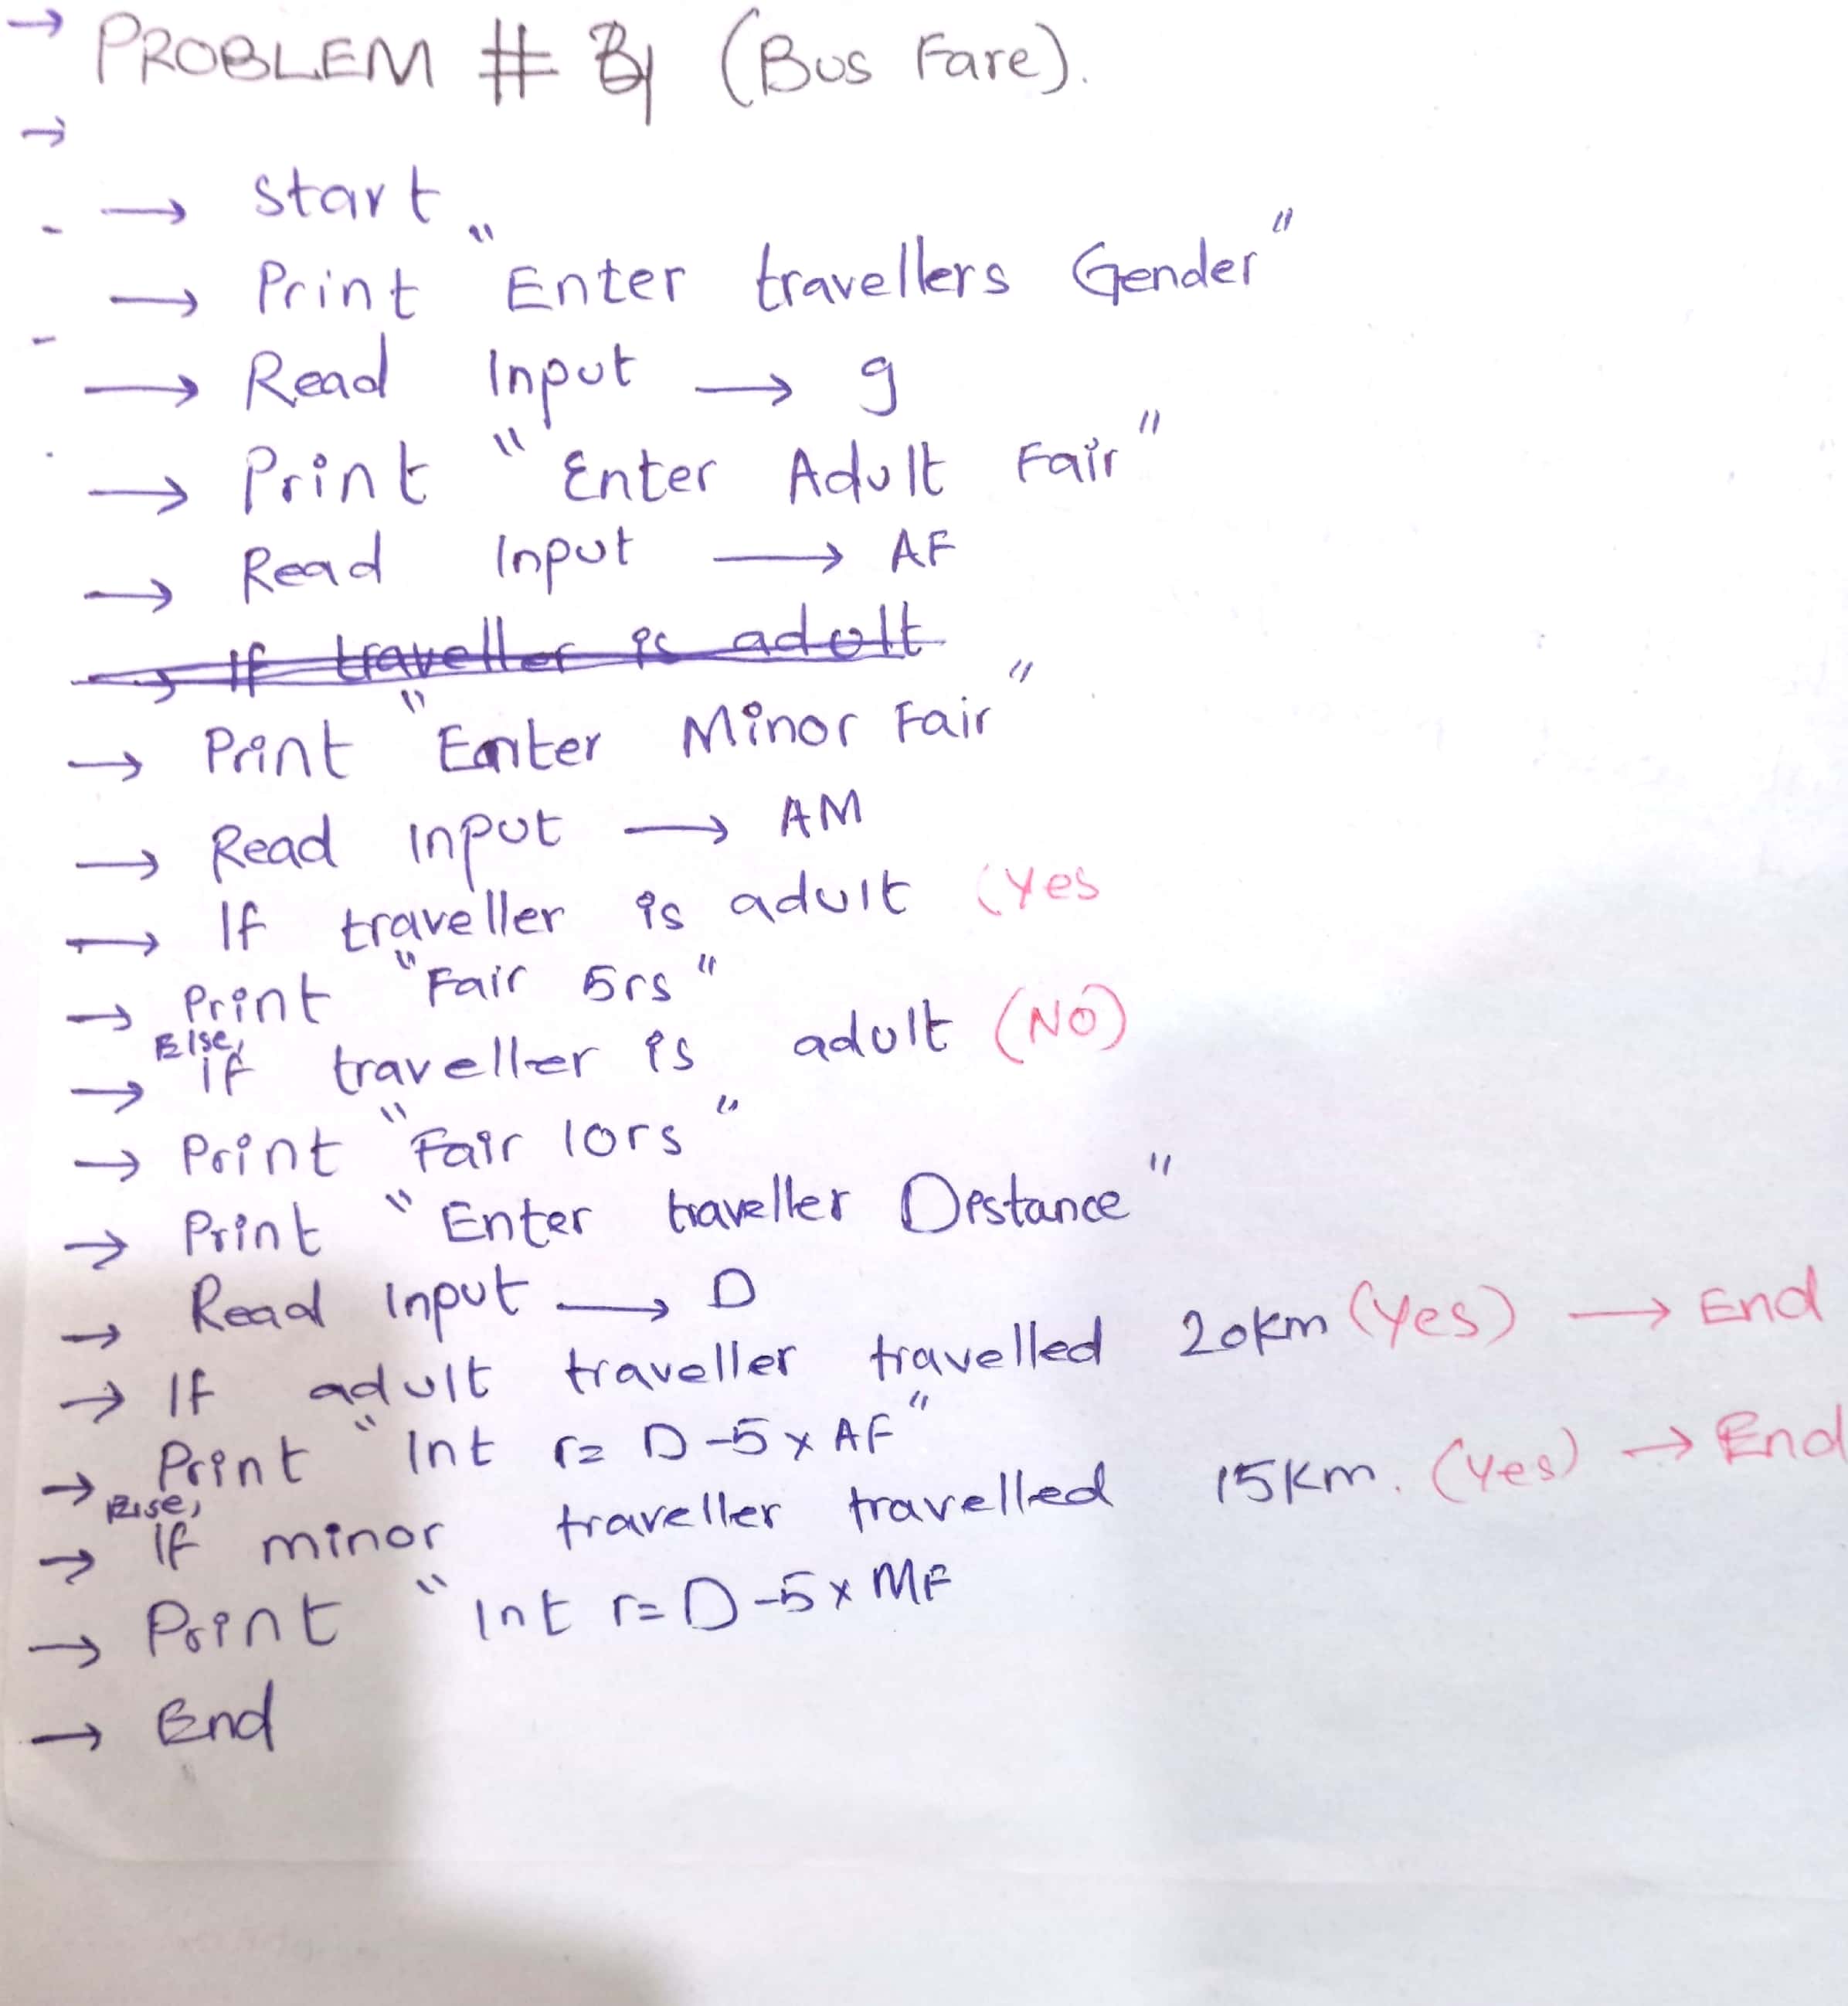 → PROBLEM # (Bus Fare).
→
→ start
→ Print "Enter travellers Gender"
→ Read Input → g
→ Print "Enter Adult Fair"
→ Read Input → AF
→ If traveller is adult
→ Print "Enter Minor Fair"
→ Read input → AM
→ If traveller is adult (Yes
→ Print "Fair 5rs"
→ Else, if traveller is adult (NO)
→ Print "Fair 10rs"
→ Print "Enter traveller Distance"
→ Read input → D
→ If adult traveller travelled 20km (Yes) → End
→ Print "Int r= D-5x AF"
→ Else, If minor traveller travelled 15km. (Yes) → End
→ Print "Int r= D-5x MF
→ End